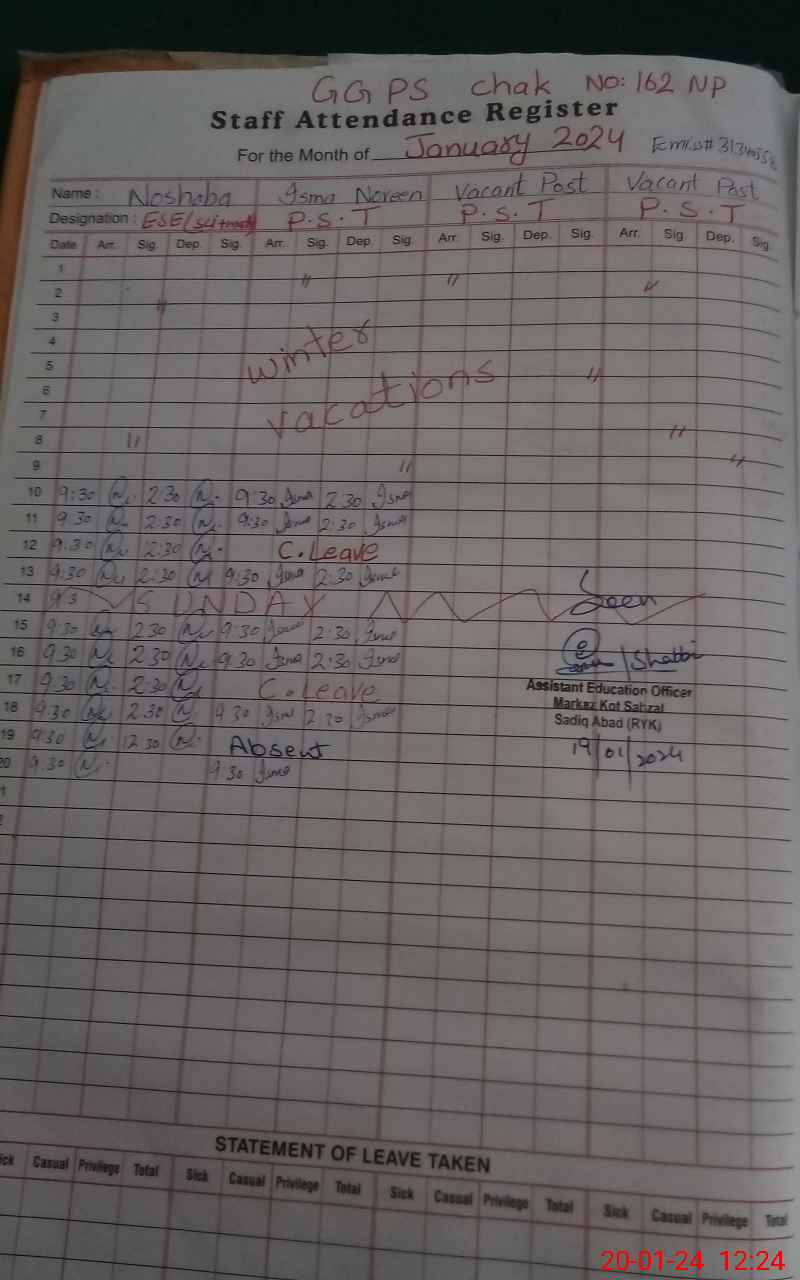 GGPS Chak No: 162 NP
Staff Attendance Register
For the Month of January 2024
Name: Noshaba Isma Noreen Vacant Post Vacant Post
Designation: ESE P.S.T P.S.T P.S.T
Date Arr. Sig. Dep. Sig. Arr. Sig. Dep. Sig. Arr. Sig. Dep. Sig. Arr. Sig. Dep. Sig.
1
2 " " "
3 "
4 winter
5
6 vacations "
7
8 " "
9 " "
10 9:30 N. 2:30 N. 9:30 Isma 2:30 Isma
11 9:30 N. 2:30 N. 9:30 Isma 2:30 Isma
12 9:30 N. 2:30 N. C. Leave
13 9:30 N. 2:30 N 9:30 Isma 2:30 Isma
14 9:3 SUNDAY Seen
15 9:30 2:30 N. 9:30 Isma 2:30 Isma
16 9:30 N. 2:30 N. 9:30 Isma 2:30 Isma
17 9:30 N. 2:30 N C. Leave
18 9:30 N. 2:30 N. 9:30 Isma 2:30 Isma
19 9:30 N. 12:30 N. Absent
20 9:30 N. 9:30 Isma
Assistant Education Officer
Markaz Kot Sabzal
Sadiq Abad (RYK)
19/01/2024
STATEMENT OF LEAVE TAKEN
Sick Casual Privilege Total Sick Casual Privilege Total Sick Casual Privilege Total Sick Casual Privilege Total
20-01-24 12:24